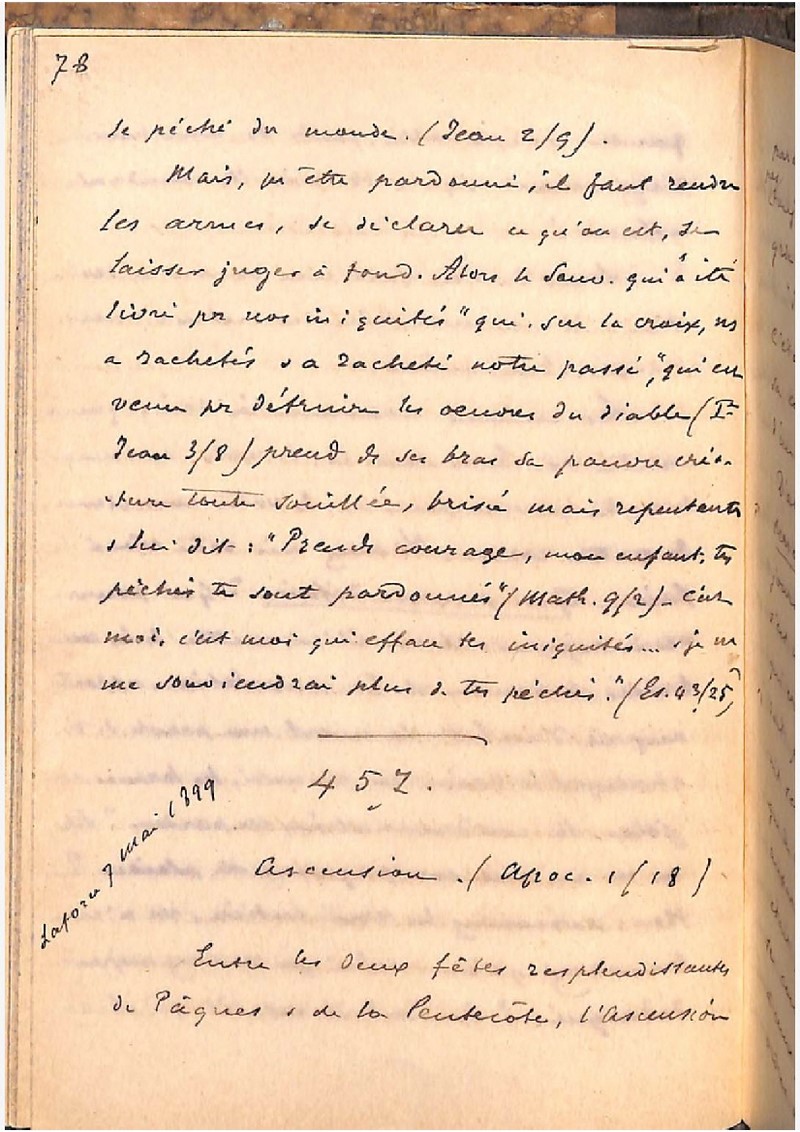 78
le péché du monde. (Jean 2/9).
Mais, pr être pardonné, il faut rendre
les armes, se déclarer ce qu'on est, se
laisser juger à fond. Alors le Sauv. qui "a été
livré pr nos iniquités" qui, sur la croix, ns
a rachetés & a racheté notre passé, "qui est
venu pr détruire les oeuvres du diable (I
Jean 3/8) prend ds ses bras sa pauvre créa-
ture toute souillée, brisée mais repentante
& lui dit : "Prends courage, mon enfant, tes
péchés te sont pardonnés" (Math. 9/2) - C'est
moi, c'est moi qui efface tes iniquités... & je ne
me souviendrai plus de tes péchés." (Es. 43/25)
457.
Laforce 7 mai 1899
Ascension. (Apoc. 1/18)
Entre les deux fêtes resplendissantes
de Pâques & de la Pentecôte, l'Ascension